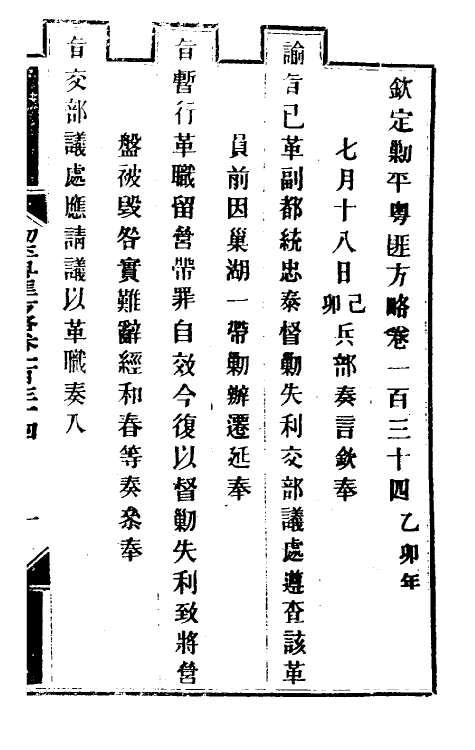 欽定勦平粤匪方略卷一百三十四 乙卯年
七月十八日己卯兵部奏言欽奉
諭旨已革副都統忠泰督勦失利交部議處遵查該革
員前因巢湖一帶勦辦遷延奉
旨暫行革職留營帶罪自效今復以督勦失利致將營
盤被毀咎實難辭經和春等奏叅奉
旨交部議處應請議以革職奏入